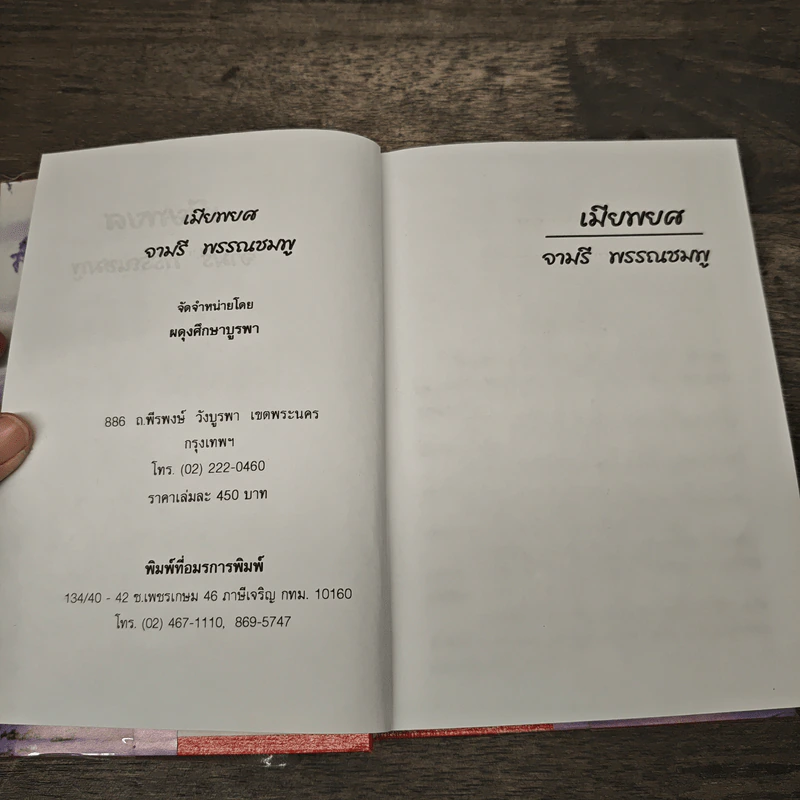 เมียพยศ
จามรี พรรณชมพู
จัดจำหน่ายโดย
ผดุงศึกษาบูรพา
886 ถ.พีรพงษ์ วังบูรพา เขตพระนคร
กรุงเทพฯ
โทร. (02) 222-0460
ราคาเล่มละ 450 บาท
พิมพ์ที่อมรการพิมพ์
134/40 - 42 ซ.เพชรเกษม 46 ภาษีเจริญ กทม. 10160
โทร. (02) 467-1110, 869-5747
เมียพยศ
จามรี พรรณชมพู